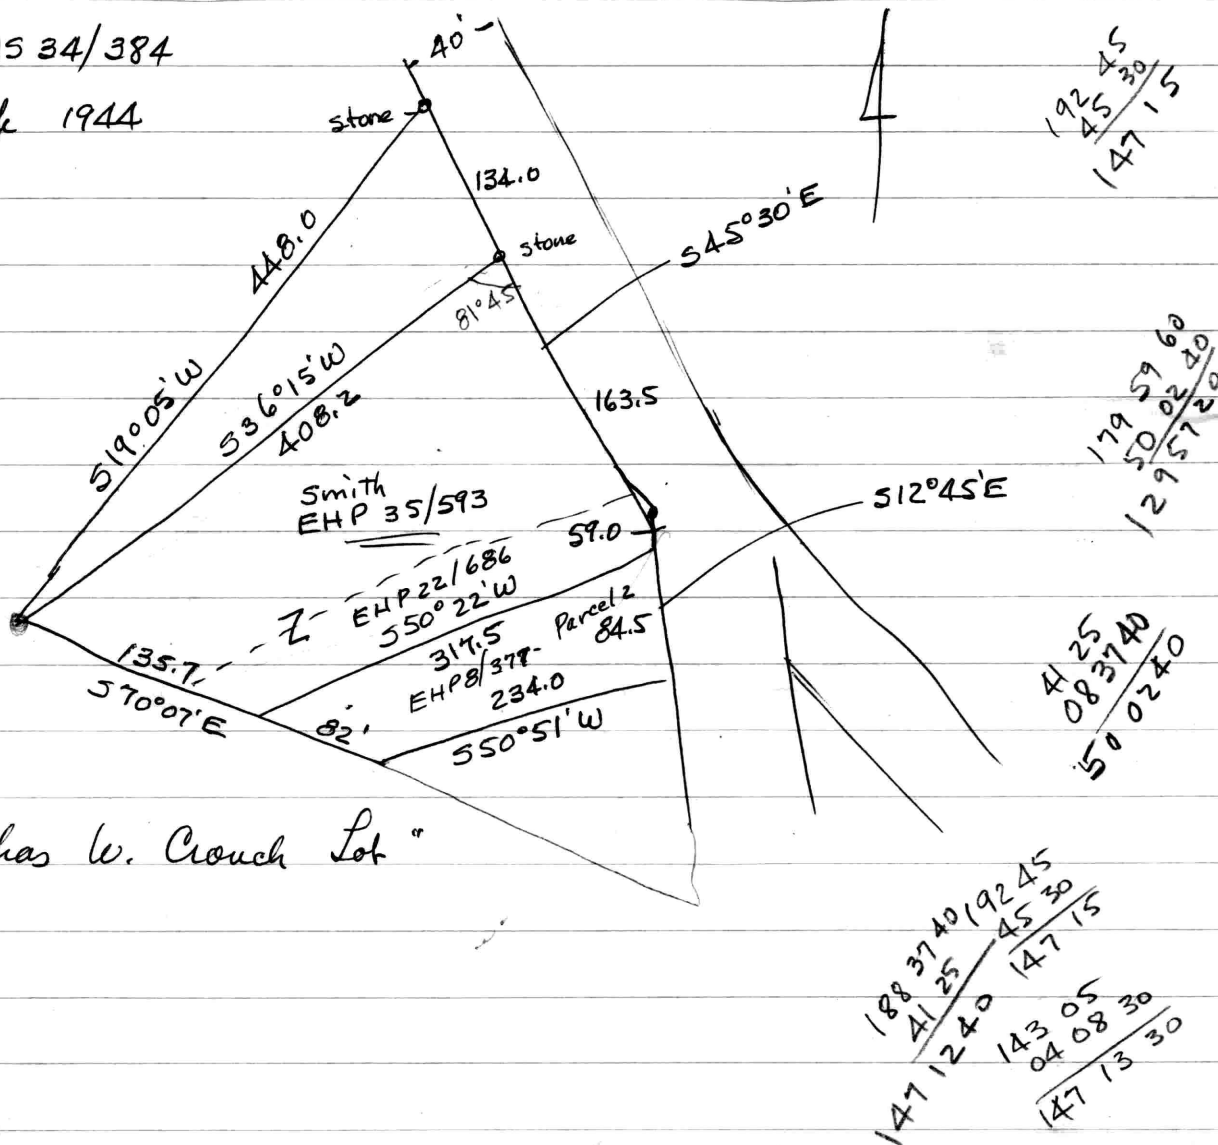 S 34/384
1944
40'
stone
134.0
stone
S45°30'E
81°45
448.0
S19°05'W
S36°15'W
408.2
163.5
Smith
EHP 35/593
59.0
S12°45'E
EHP 22/686
S50°22'W
317.5
Parcel 2
84.5
EHP 8/377-
234.0
S50°51'W
135.7
S70°07'E
82'
has W. Crouch Lot "
192 45
45 30
147 15
179 59 60
50 02 40
129 57 20
41 25
08 37 40
50 02 40
188 37 40
41 25
147 12 40
192 45
45 30
147 15
143 05
04 08 30
147 13 30